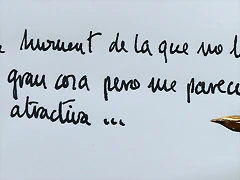 moment de la que no l
gran cosa pero me parece
atractiva ...